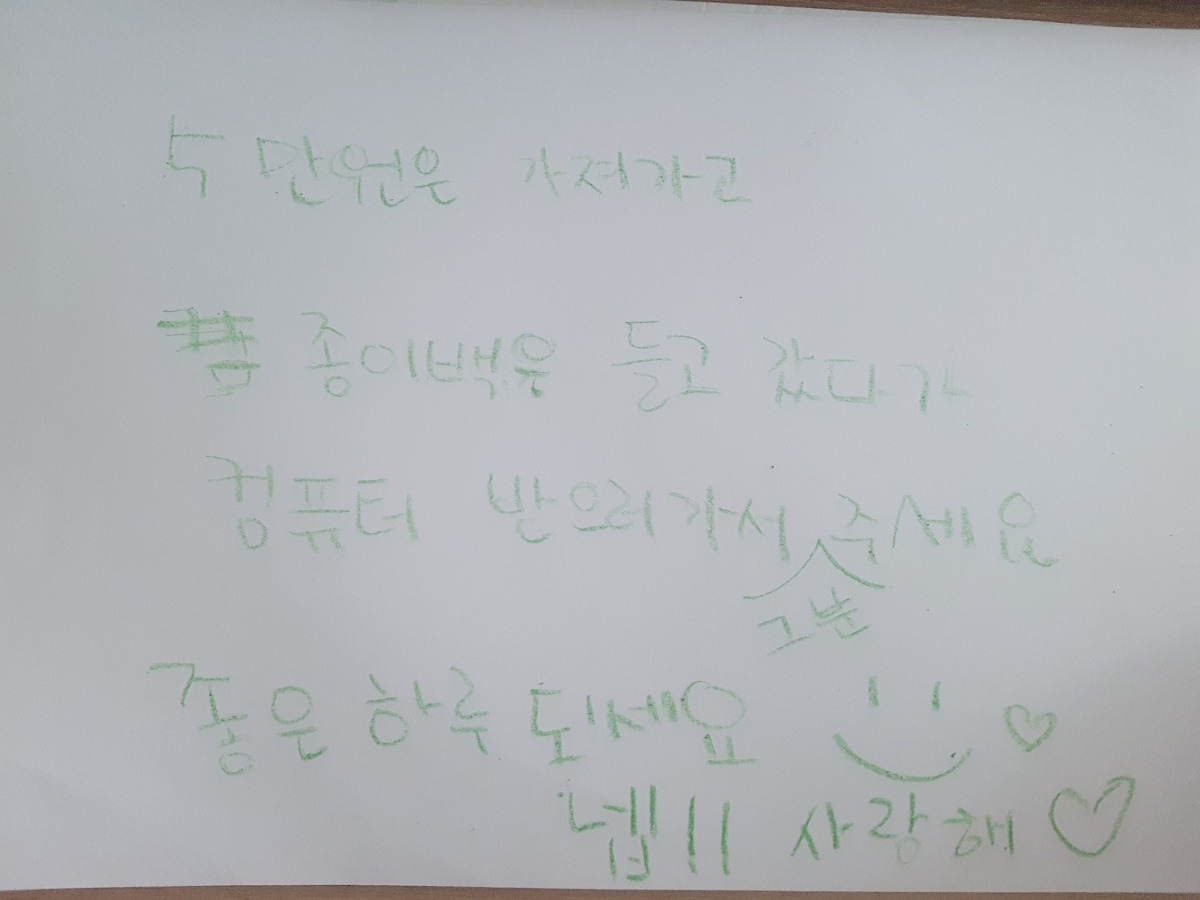 5만원은 가져가고
종이백은 들고 갔다가
컴퓨터 받으러가서 주세요
그분
좋은 하루 되세요
넵!! 사랑해♡